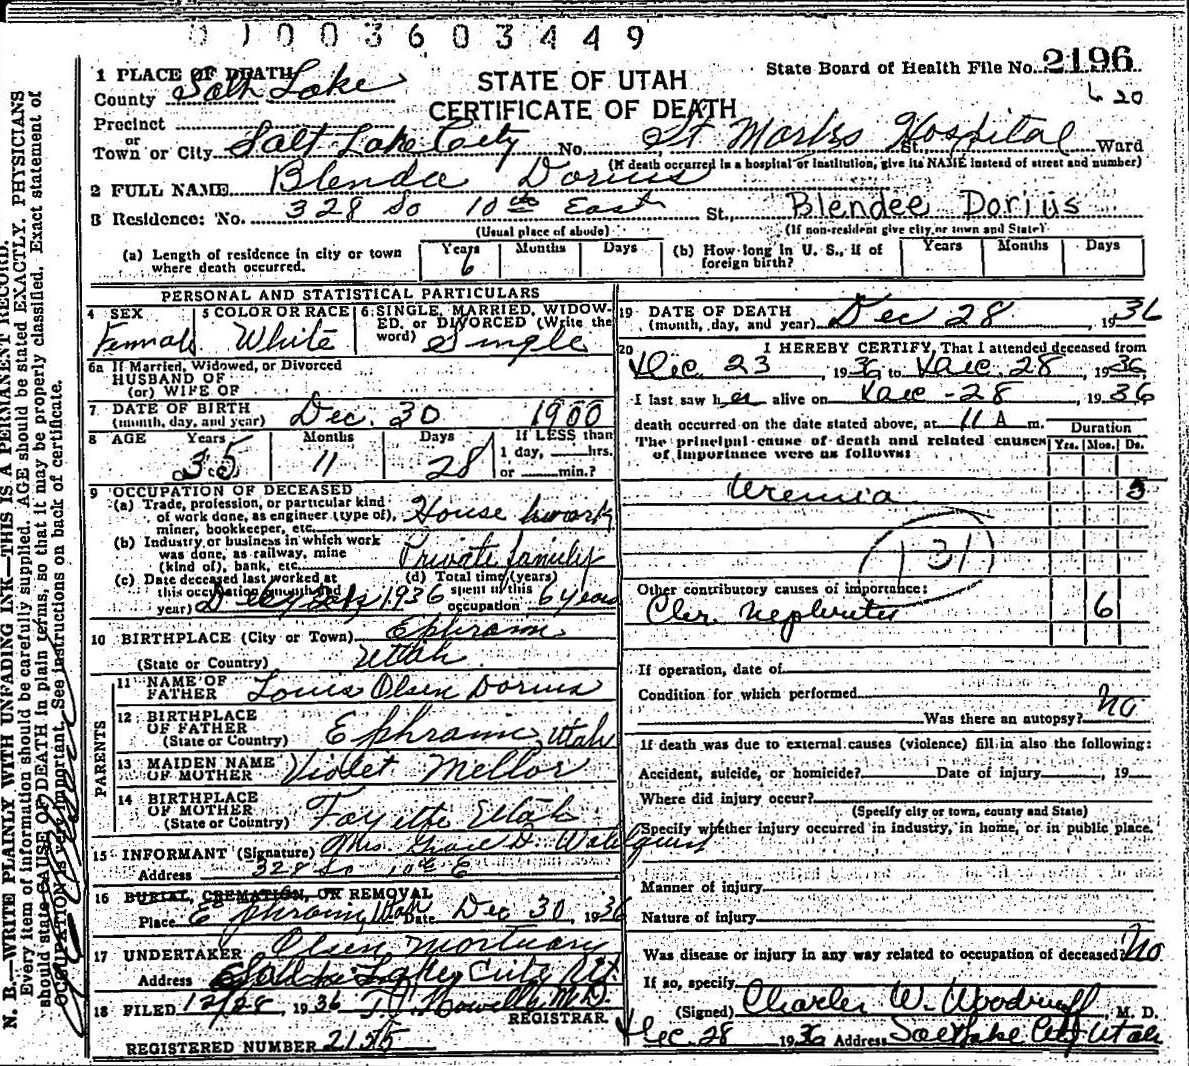 01003603449
State Board of Health File No. 2196
6 20
STATE OF UTAH
CERTIFICATE OF DEATH
1 PLACE OF DEATH
County Salt Lake
Precinct
or
Town or City Salt Lake City No. St Marks Hospital St., Ward
(If death occurred in a hospital or institution, give its NAME instead of street and number)
2 FULL NAME Blendee Dorius
3 Residence: No. 328 So 10th East St., Blendee Dorius
(Usual place of abode) (If non-resident give city or town and State)
(a) Length of residence in city or town where death occurred. Years 6 Months Days
(b) How long in U. S., if of foreign birth? Years Months Days
PERSONAL AND STATISTICAL PARTICULARS
4 SEX Female
5 COLOR OR RACE White
6 SINGLE, MARRIED, WIDOWED, or DIVORCED (Write the word) Single
6a If Married, Widowed, or Divorced
HUSBAND OF
(or) WIFE OF
7 DATE OF BIRTH
(month, day, and year) Dec. 30 1900
8 AGE Years 35 Months 11 Days 28 If LESS than
1 day, hrs.
or min.?
9 OCCUPATION OF DECEASED
(a) Trade, profession, or particular kind of work done, as engineer (type of), miner, bookkeeper, etc. House work
(b) Industry or business in which work was done, as railway, mine (kind of), bank, etc. Private family
(c) Date deceased last worked at this occupation (month and year) 1936
(d) Total time (years) spent in this occupation 6 years
10 BIRTHPLACE (City or Town) Ephraim
(State or Country) Utah
PARENTS
11 NAME OF FATHER Louis Olsen Dorius
12 BIRTHPLACE OF FATHER
(State or Country) Ephraim, Utah
13 MAIDEN NAME OF MOTHER Violet Mellor
14 BIRTHPLACE OF MOTHER
(State or Country) Fayette Utah
15 INFORMANT (Signature) Mrs. Grace D. Wallquist
Address 328 So 10th E
16 BURIAL, CREMATION, OR REMOVAL
Place Ephraim Utah Date Dec 30, 1936
17 UNDERTAKER Olsen Mortuary
Address Salt Lake City Ut.
18 FILED 12/28, 1936 T. J. Howells M.D.
REGISTRAR.
REGISTERED NUMBER 2155
19 DATE OF DEATH
(month, day, and year) Dec 28, 1936
20 I HEREBY CERTIFY, That I attended deceased from
Dec. 23, 1936 to Dec. 28, 1936
I last saw her alive on Dec - 28, 1936
death occurred on the date stated above, at 11 A m.
The principal cause of death and related causes of importance were as follows:
Duration
Yrs. Mos. Ds.
Uremia 5
131
Other contributory causes of importance:
Chr. Nephritis 6
If operation, date of
Condition for which performed
Was there an autopsy? No
If death was due to external causes (violence) fill in also the following:
Accident, suicide, or homicide? Date of injury , 19
Where did injury occur?
(Specify city or town, county and State)
Specify whether injury occurred in industry, in home, or in public place.
Manner of injury
Nature of injury
Was disease or injury in any way related to occupation of deceased? No
If so, specify
(Signed) Charles W. Woodruff, M. D.
Dec. 28 1936 Address Salt Lake City Utah
N. B.—WRITE PLAINLY WITH UNFADING INK—THIS IS A PERMANENT RECORD.
Every item of information should be carefully supplied. AGE should be stated EXACTLY. PHYSICIANS
should state CAUSE OF DEATH in plain terms, so that it may be properly classified. Exact statement of
OCCUPATION is very important. See instructions on back of certificate.